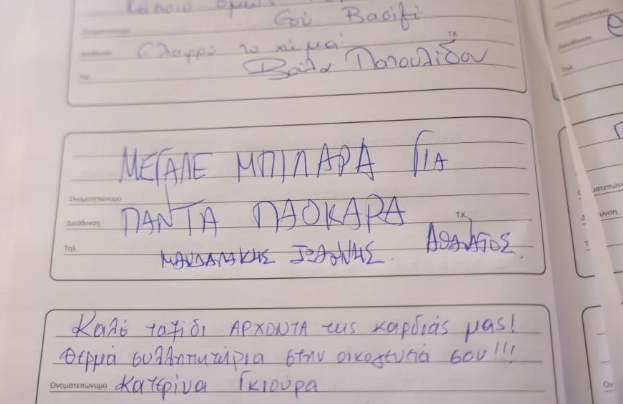 κάποιο
σου Βασίλη
Ονοματεπώνυμο
Ελαφρύ το χώμα!
Τ.Κ.
Διεύθυνση
Βούλα Πατουλίδου
Τηλ.
ΜΕΓΑΛΕ ΜΠΙΛΑΡΑ ΓΙΑ
Ονοματεπώνυμο
ΠΑΝΤΑ ΠΑΟΚΑΡΑ
Διεύθυνση
Τ.Κ.
ΑΘΑΝΑΤΟΣ.
Τηλ.
ΙΩΑΝΝΗΣ.
Καλό ταξίδι ΑΡΧΟΝΤΑ της καρδιάς μας!
Θερμά συλληπητήρια στην οικογένειά σου!!!
Ονοματεπώνυμο Κατερίνα Γκιούρα